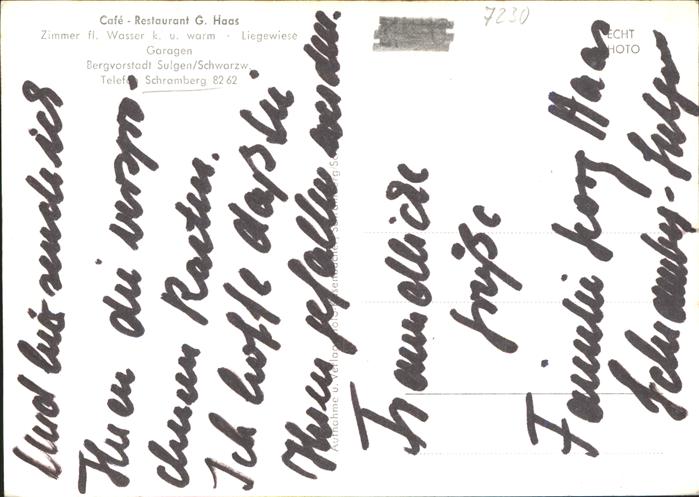 Café - Restaurant G. Haas
Zimmer fl. Wasser k. u. warm · Liegewiese
Garagen
Bergvorstadt Sulgen/Schwarzw.
Telefon Schramberg 82 62
7230
ECHT
PHOTO
Und hier sende ich
Ihnen die verspro-
chenen Karten.
Ich hoffe daß sie
Ihnen gefallen werden.
Freundliche
Grüße
Familie Georg Haas
Schramberg-Sulgen
Aufnahme u. Verlag